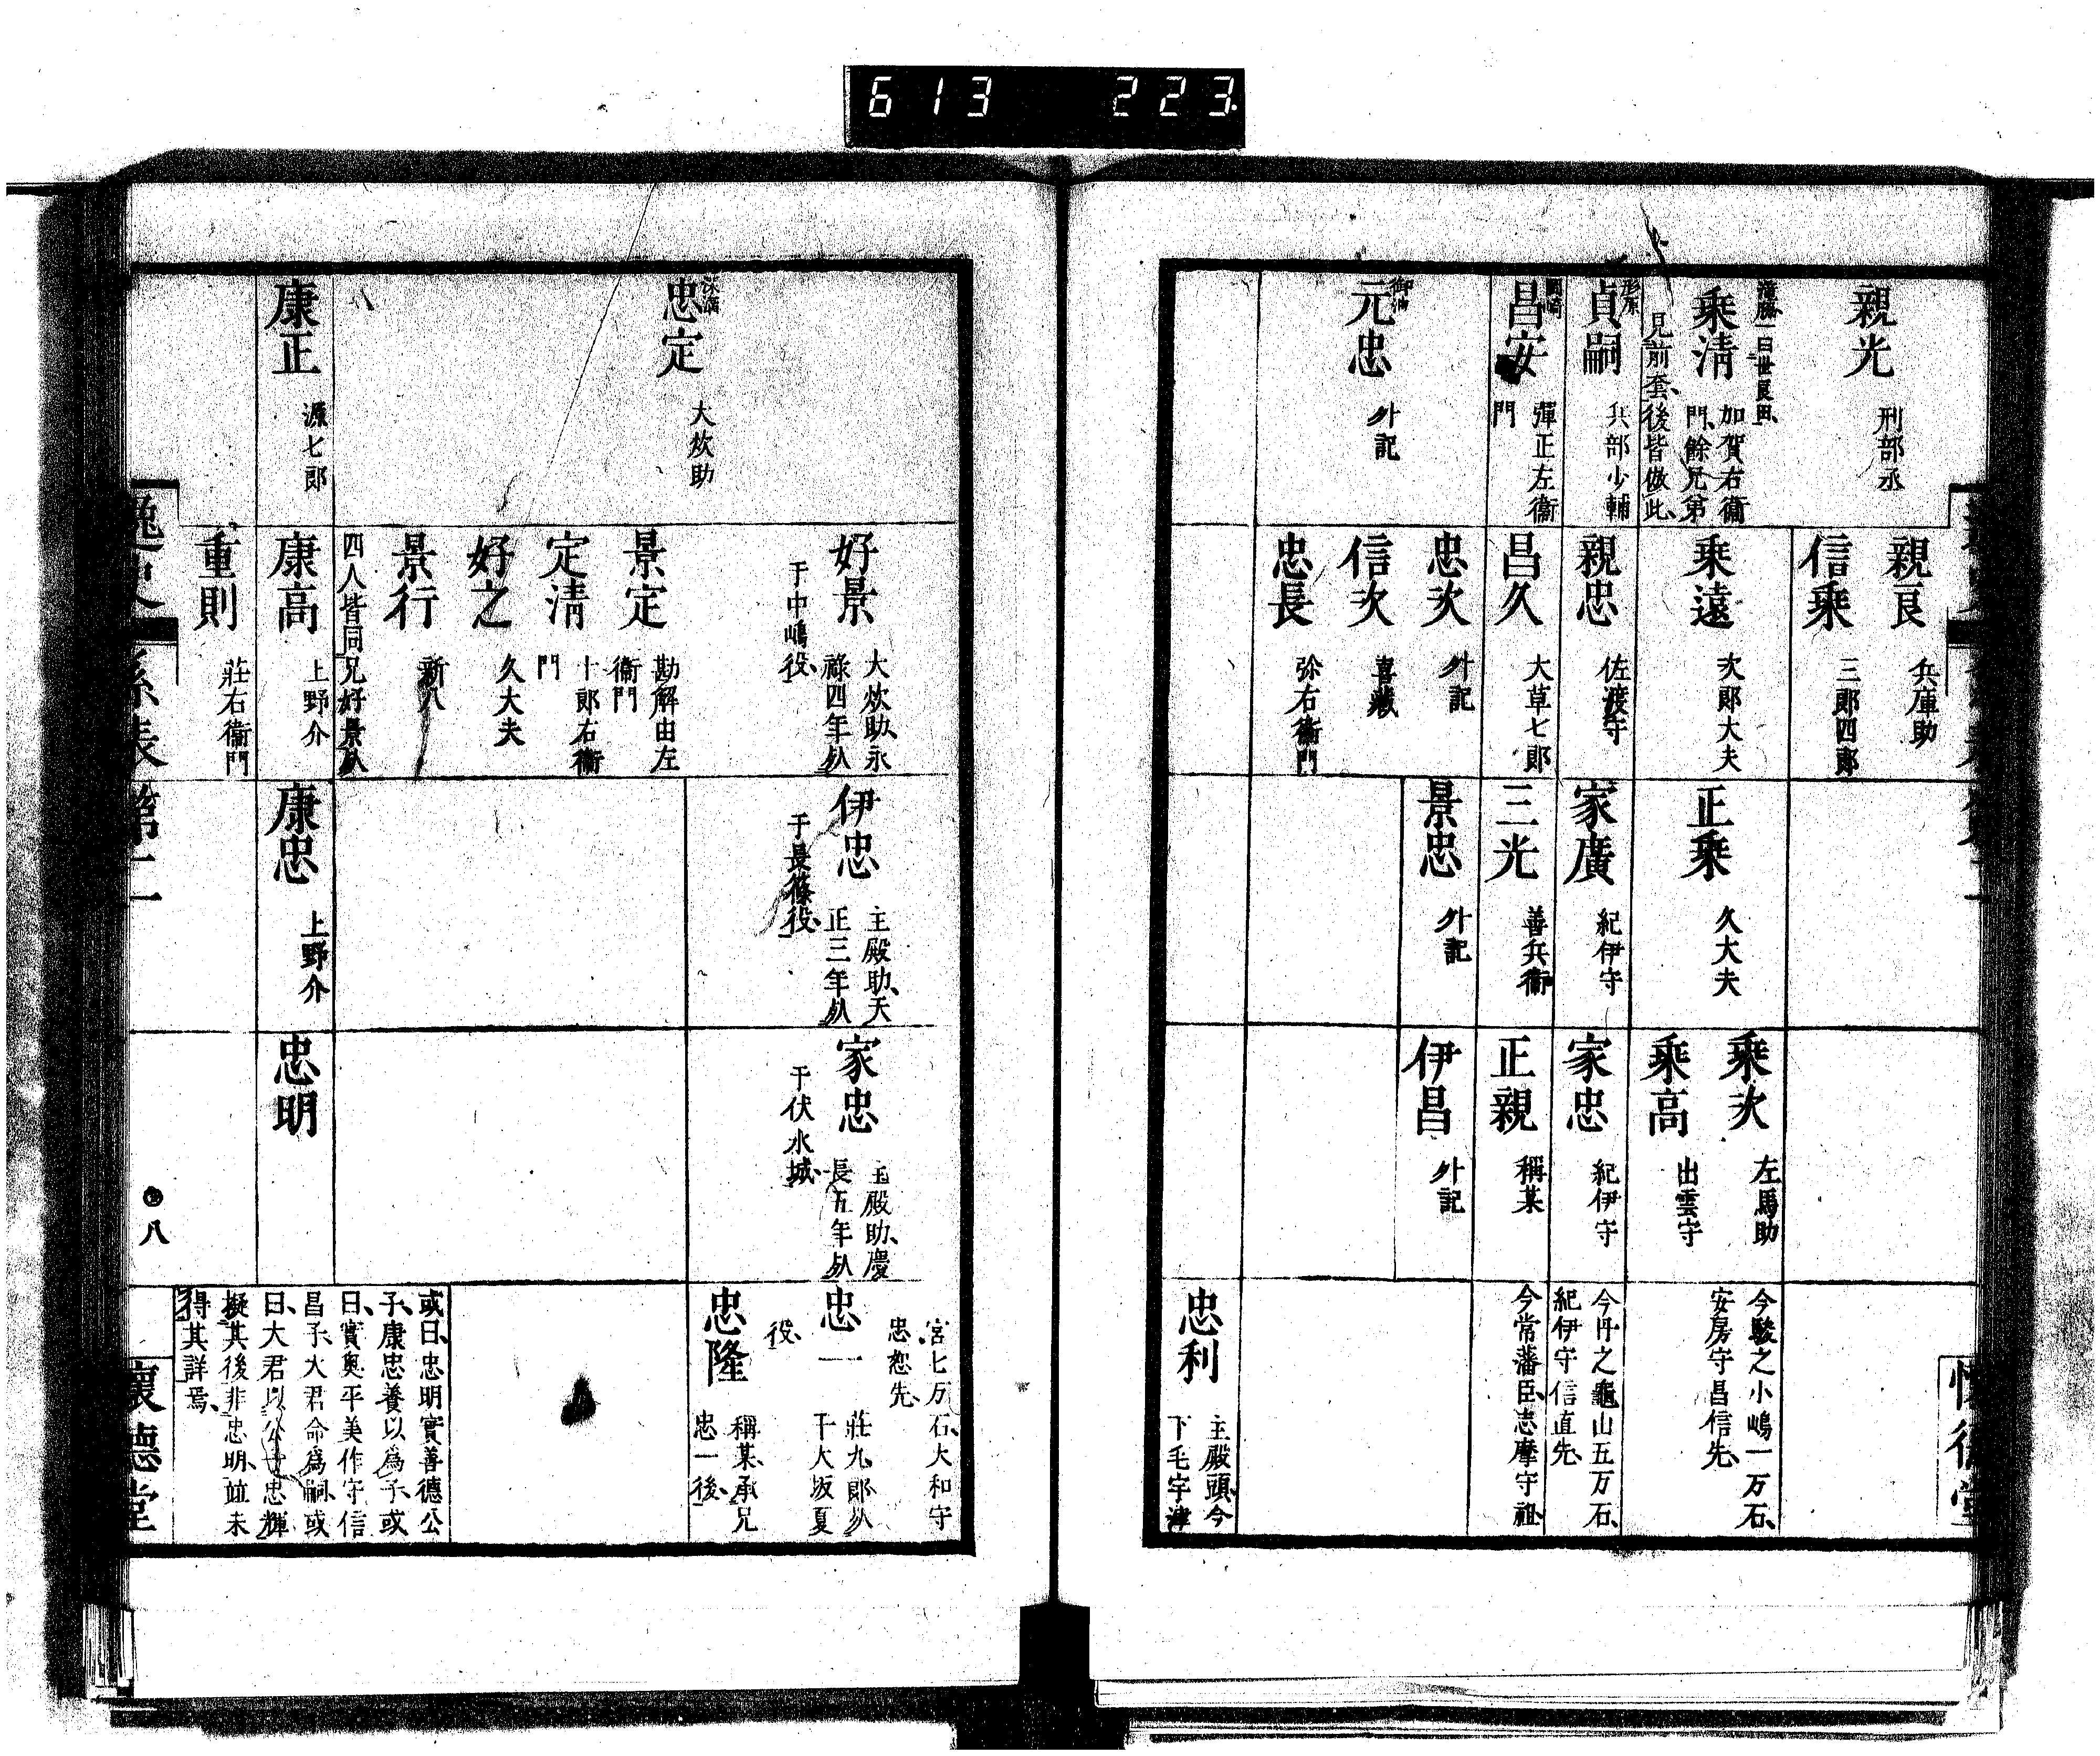 613 223
親光
刑部丞
瀧脇一曰世良田、
乗清
加賀右衞
門、餘兄弟
見前套、後皆倣此、
形原
貞嗣
兵部少輔
岡崎
昌安
彈正左衞
門
御油
元忠
外記
親良
兵庫助
信乗
三郎四郎
乗遠
次郎大夫
親忠
佐渡守
昌久
大草七郎
忠次
外記
信次
喜藏
忠長
弥右衞門
正乗
久大夫
家廣
紀伊守
三光
善兵衞
景忠
外記
乗次
左馬助
乗高
出雲守
家忠
紀伊守
正親
稱某
伊昌
外記
今駿之小嶋一万石、
安房守昌信先、
今丹之龜山五万石、
紀伊守信直先、
今常藩臣、志摩守祖、
忠利
主殿頭、今
下毛宇津
懷德堂
深溝
忠定
大炊助
康正
源七郎
好景
大炊助、永
祿四年、死
于中嶋役、
景定
勘解由左
衞門
定清
十郎右衞
門
好之
久大夫
景行
新八
四人皆同兄好景死
康高
上野介
重則
莊右衞門
伊忠
主殿助、天
正三年、死
于長篠役、
康忠
上野介
家忠
主殿助、慶
長五年、死
于伏水城、
忠明
宮七万石、大和守
忠恕先、
忠一
莊九郎、死
于大坂夏
役、
忠隆
稱某、承兄
忠一後、
或曰、忠明實善德公
子、康忠養以爲子、或
曰、實奧平美作守信
昌子、大君命爲嗣、或
曰、大君以公子忠輝
擬其後、非忠明、竝未
得其詳焉、
逸史
系表第二
八
懷德堂